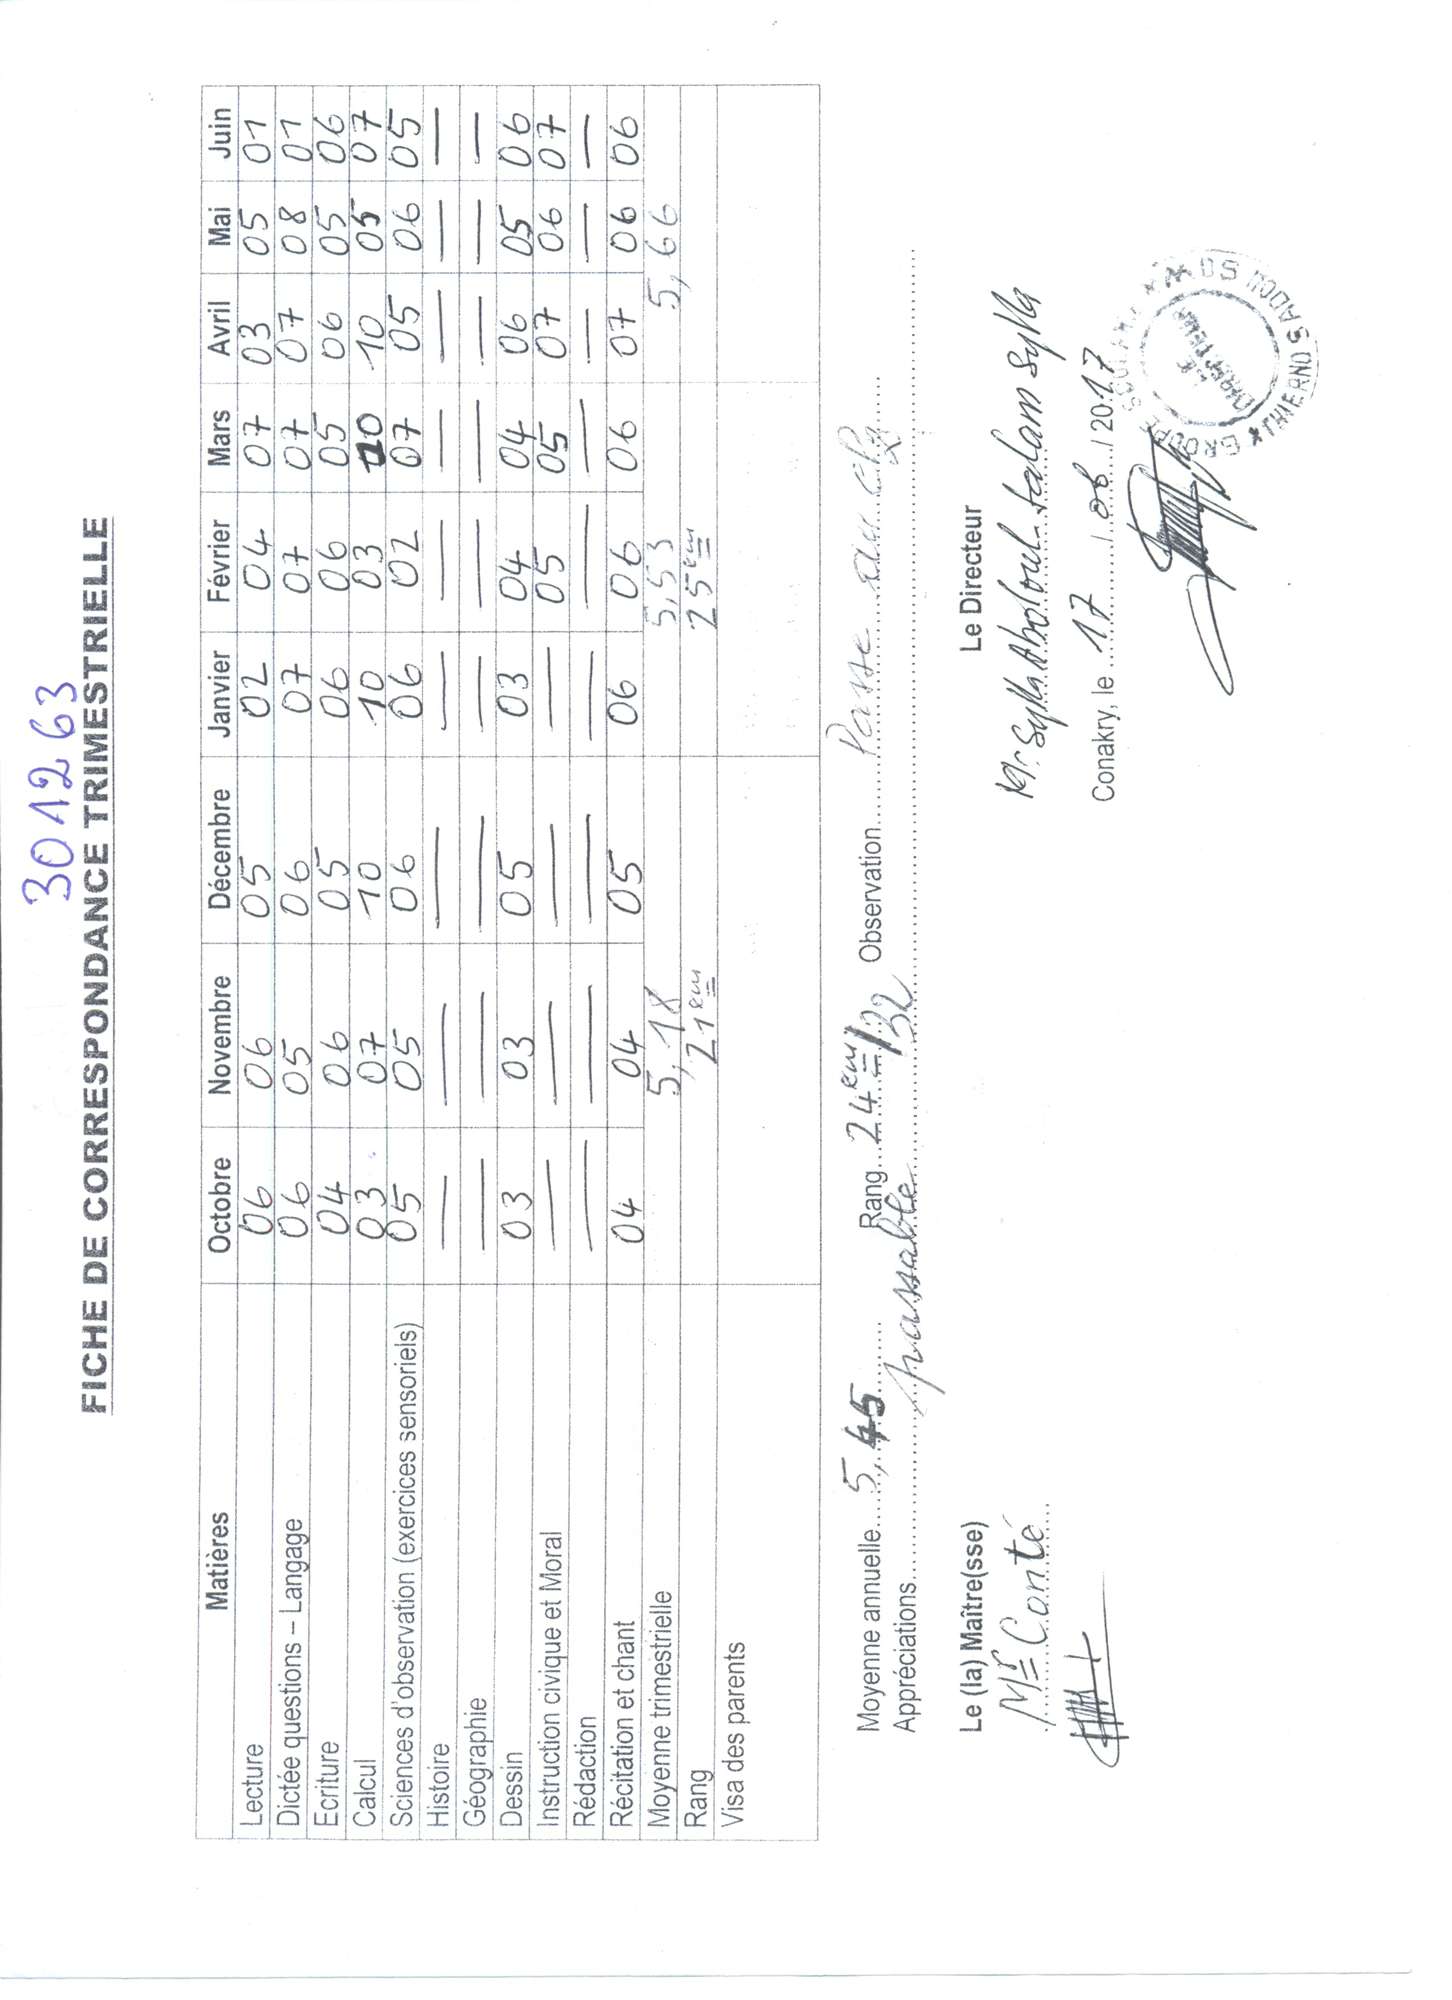 301263
FICHE DE CORRESPONDANCE TRIMESTRIELLE
Matières Octobre Novembre Décembre Janvier Février Mars Avril Mai Juin
Lecture 06 06 05 02 04 07 03 05 01
Dictée questions – Langage 06 05 06 07 07 07 07 08 01
Ecriture 04 06 05 06 06 05 06 05 06
Calcul 03 07 10 10 03 10 10 05 07
Sciences d'observation (exercices sensoriels) 05 05 06 06 02 07 05 06 05
Histoire — — — — — — — — —
Géographie — — — — — — — — —
Dessin 03 03 05 03 04 04 06 05 06
Instruction civique et Moral — — — — 05 05 07 06 07
Rédaction — — — — — — — — —
Récitation et chant 04 04 05 06 06 06 07 06 06
Moyenne trimestrielle 5,18 5,53 5,66
Rang 21em 25em
Visa des parents
Moyenne annuelle.....5,45..... Rang...24em/32 Observation.....Passe au
Appréciations.....passable.....
Le (la) Maître(sse) Le Directeur
Mr Conté Mr. Sylla Abdoul Salam Sylla
Conakry, le 17 / 06 / 2017
GROUPE SCOLAIRE THIERNO SADOU